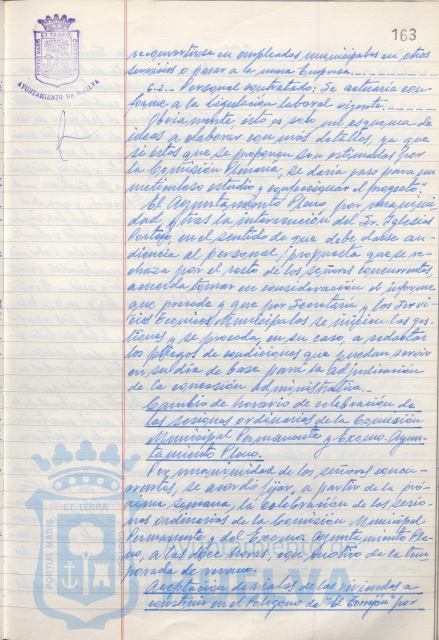 163
PORTUS MARIS ET TERRAE CUSTODIA
AYUNTAMIENTO DE HUELVA
reconvertirse en empleados municipales en otros
servicios o pasar a la nueva Empresa.
6.2.- Personal contratado: Se actuaría con-
forme a la legislación laboral vigente.
Obviamente esto es solo un esquema de
ideas a elaborar con más detalles, ya que
si éstas que se proponen son estimadas por
la Comisión Plenaria, se daría paso para un
meticuloso estudio y confeccionar el proyecto."
El Ayuntamiento Pleno, por unanimi-
dad, y tras la intervención del Sr. Iglesias
Portojo, en el sentido de que debe darse au-
diencia al personal, propuesta que se re-
chaza por el resto de los señores concurrentes,
acuerda tomar en consideración el informe
que precede y que por Secretaría y los Servi-
cios Técnicos Municipales se inicien las ges-
tiones y se proceda, en su caso, a redactar
los pliegos de condiciones que puedan servir
en su día de base para la adjudicación
de la concesión administrativa.
Cambio de horario de celebración de
las sesiones ordinarias de la Comisión
Municipal Permanente y Excmo. Ayun-
tamiento Pleno.
Por unanimidad de los señores concu-
rrentes, se acordó fijar, a partir de la pró-
xima semana, la celebración de las sesio-
nes ordinarias de la Comisión Municipal
Permanente y del Excmo. Ayuntamiento Ple-
no, a las doce horas, con motivo de la tem-
porada de verano.
Aceptación de viales de las viviendas a
construir en el Polígono de "El Torrejón" por
PORTUS MARIS ET TERRA
HUELVA